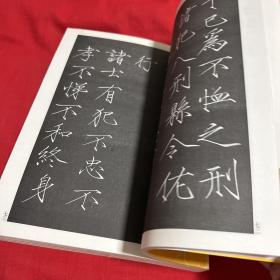 已為不恤之刑
諸犯人刑縣令佐
行
諸士有犯不忠不
孝不悌不和終身